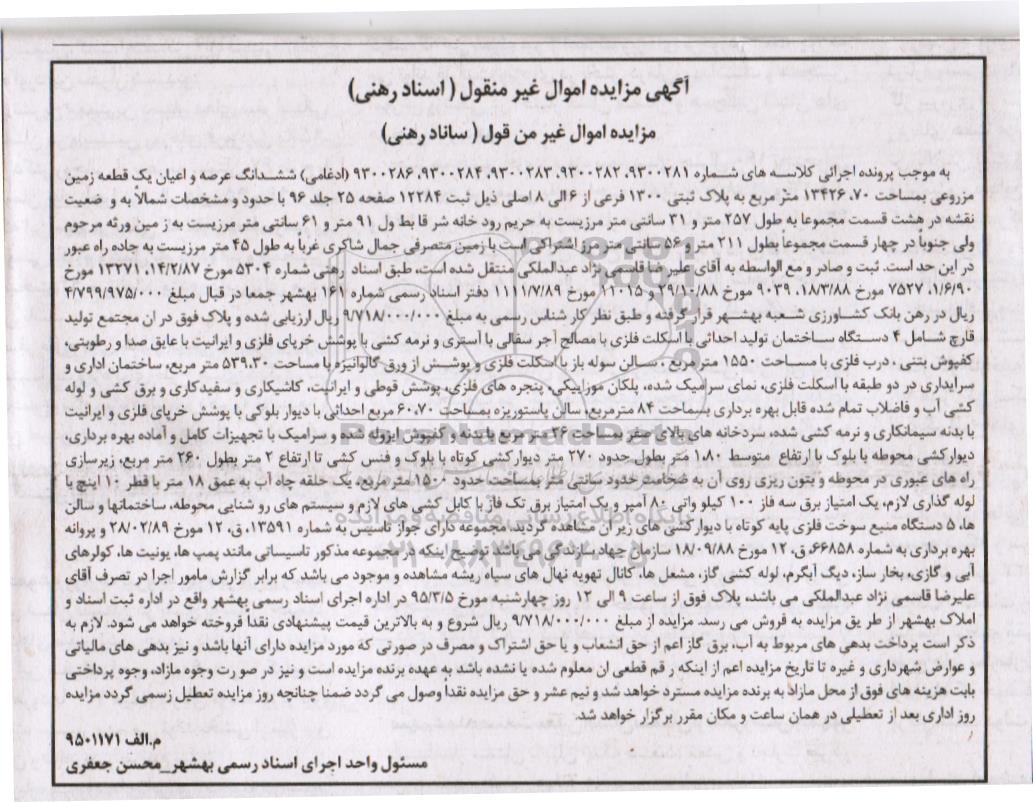 آگهی مزایده اموال غیر منقول ( اسناد رهنی)
مزایده اموال غیر من قول ( ساناد رهنی)
به موجب پرونده اجرائی کلاسه های شماره ۹۳۰۰۲۸۱، ۹۳۰۰۲۸۲، ۹۳۰۰۲۸۳، ۹۳۰۰۲۸۴، ۹۳۰۰۲۸۶ (ادغامی) ششدانگ عرصه و اعیان یک قطعه زمین
مزروعی بمساحت ۱۳۴۲۶،۷۰ متر مربع به پلاک ثبتی ۱۳۰۰ فرعی از ۶ الی ۸ اصلی ذیل ثبت ۱۲۲۸۴ صفحه ۲۵ جلد ۹۶ با حدود و مشخصات شمالاً به و وضعیت
نقشه در هشت قسمت مجموعا به طول ۲۵۷ متر و ۳۱ سانتی متر مرزیست به حریم رود خانه شر قا بط ول ۹۱ متر و ۶۱ سانتی متر مرزیست به ز مین ورثه مرحوم
ولی جنوبا در چهار قسمت مجموعا بطول ۲۱۱ متر و ۵۶ سانتی متر مرز اشتراکی است با زمین متصرفی جمال شاکری غربا به طول ۴۵ متر مرزیست به جاده راه عبور
در این حد است. ثبت و صادر و مع الواسطه به آقای علیر ضا قاسمی نژاد عبدالملکی منتقل شده است، طبق اسناد رهنی شماره ۵۳۰۴ مورخ ۱۴/۲/۸۷، ۱۳۲۷۱ مورخ
۱/۶/۹۰، ۷۵۲۷ مورخ ۱۸/۳/۸۸، ۹۰۳۹ مورخ ۲۹/۱۰/۸۸ و مورخ ۱۱۱۱/۷/۸۹ دفتر اسناد رسمی شماره ۱۶۱ بهشهر جمعا در قبال مبلغ ۴/۷۹۹/۹۷۵/۰۰۰
ریال در رهن بانک کشاورزی شعبه بهشهر قرار گرفته و طبق نظر کار شناس رسمی به مبلغ ۹/۷۱۸/۰۰۰/۰۰۰ ریال ارزیابی شده و پلاک فوق در ان مجتمع تولید
قارچ شامل ۴ دستگاه ساختمان تولید احداثی با اسکلت فلزی با مصالح آجر سفالی با آستری و نرمه کشی با پوشش خرپای فلزی و ایرانیت با عایق صدا و رطوبتی،
کفپوش بتنی، درب فلزی با مساحت ۱۵۵۰ مترمربع، سالن سوله باز با اسکلت فلزی و پوشش از ورق گالوانیزه با مساحت ۵۳۹،۳۰ متر مربع، ساختمان اداری و
سرایداری در دو طبقه با اسکلت فلزی، نمای سرامیک شده، پلکان موزائیکی، پنجره های فلزی، پوشش قوطی و ایرانیت، کاشیکاری و سفیدکاری و برق کشی و لوله
کشی آب و فاضلاب تمام شده قابل بهره برداری بسماحت ۸۴ مترمربع، سالن پاستوریزه بمساحت ۶۰،۷۰ مربع احداثی با دیوار بلوکی با پوشش خرپای فلزی و ایرانیت
با بدنه سیمانکاری و نرمه کشی شده، سردخانه های بالای صفر مساحت ۳۶ متر مربع با بدنه و کفپوش ایزوله شده و سرامیک با تجهیزات کامل و آماده بهره برداری،
دیوارکشی محوطه با بلوک با ارتفاع متوسط ۱،۸۰ متر بطول حدود ۲۷۰ متر دیوارکشی کوتاه با بلوک و فنس کشی تا ارتفاع ۲ متر بطول ۲۶۰ متر مربع، زیرسازی
راه های عبوری در محوطه و بتون ریزی روی آن به ضخامت حدود سانتی متر بمساحت حدود ۱۵۰۰ متر مربع، یک حلقه چاه آب به عمق ۱۸ متر با قطر ۱۰ اینچ با
لوله گذاری لازم، یک امتیاز برق سه فاز ۱۰۰ کیلو واتی، ۸۰ آمپر ویک امتیاز برق تک فاز با کابل کشی های لازم و سیستم های رو شنایی محوطه، ساختمانها و سالن
ها، ۵ دستگاه منبع سوخت فلزی پایه کوتاه با دیوار کشی های دور آن مشاهده گردید، مجموعه دارای جواز تاسیس به شماره ۱۳۵۹۱، ق، ۱۲ مورخ ۲۸/۰۲/۸۹ و پروانه
بهره برداری به شماره ۶۶۸۵۸، ق، ۱۲ مورخ ۱۸/۰۹/۸۸ سازمان جهاد سازندگی می باشد توضیح اینکه در مجموعه مذکور تاسیساتی مانند پمپ ها، یونیت ها، کولرهای
آبی و گازی، بخار ساز، دیگ آبگرم، لوله کشی گاز، مشعل ها، کانال تهویه نهال های سیاه ریشه مشاهده و موجود می باشد که برابر گزارش مامور اجرا در تصرف آقای
علیرضا قاسمی نژاد عبدالملکی می باشد، پلاک فوق از ساعت ۹ الی ۱۲ روز چهارشنبه مورخ ۹۵/۳/۵ در اداره اجرای اسناد رسمی بهشهر واقع در اداره ثبت اسناد و
املاک بهشهر از طر یق مزایده به فروش می رسد. مزایده از مبلغ ۹/۷۱۸/۰۰۰/۰۰۰ ریال شروع و به بالاترین قیمت پیشنهادی نقدا فروخته خواهد می شود. لازم به
ذکر است پرداخت بدهی های مربوط به آب، برق گاز اعم از حق انشعاب و یا حق اشتراک و مصرف در صورتی که مورد مزایده دارای آنها باشد و نیز بدهی های مالیاتی
و عوارض شهرداری و غیره تا تاریخ مزایده اعم از اینکه، ر قم قطعی ان معلوم شده یا نشده باشد به عهده برنده مزایده است و نیز در صورت وجوه مازاد، وجوه پرداختی
بابت هزینه های فوق از محل مازاد به برنده مزایده مسترد خواهد شد و نیم عشر و حق مزایده نقدا وصول می گردد ضمنا چنانچه روز مزایده تعطیل رسمی گردد مزایده
روز اداری بعد از تعطیلی در همان ساعت و مکان مقرر برگزار خواهد شد.
م.الف ۹۵۰۱۱۷۱
مسئول واحد اجرای اسناد رسمی بهشهر_محسن جعفری